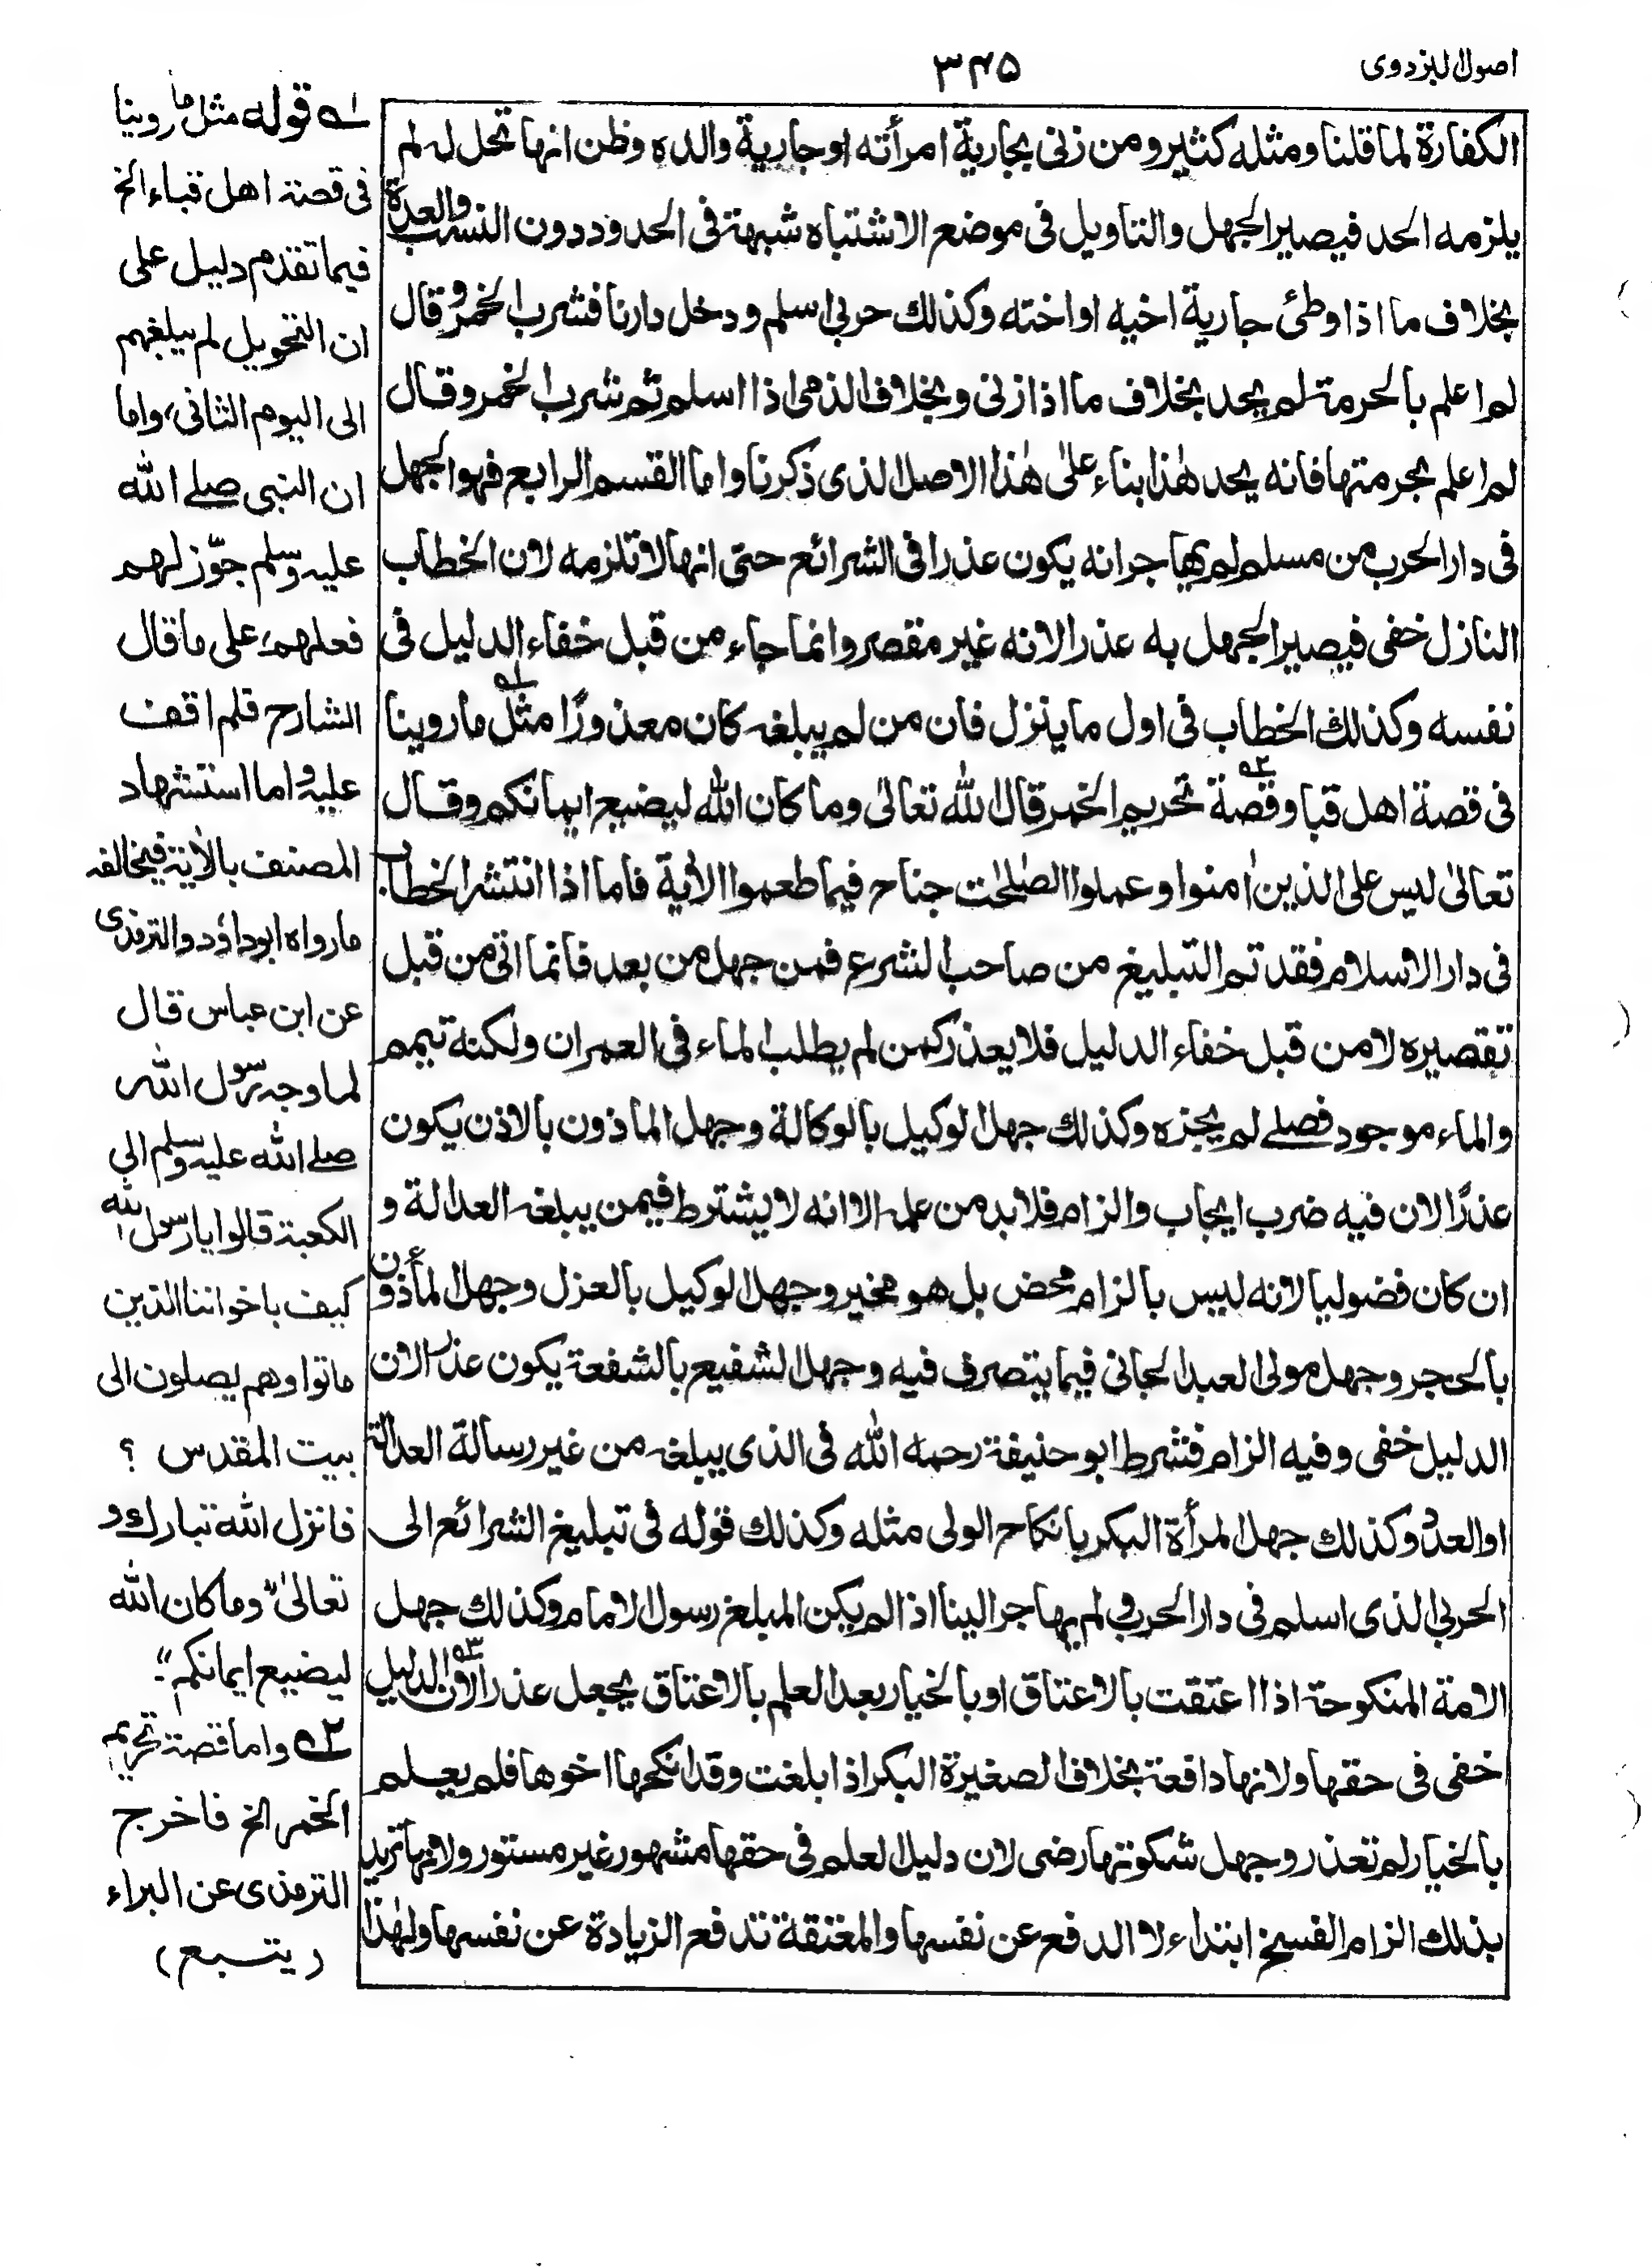 اصول البزدوی
٣٤٥
الكفارة لما قلنا ومثله كثير ومن زنى بجارية امرأته او جارية والده وظن انها تحل له لم
يلزمه الحد فيصير الجهل والتاويل فى موضع الاشتباه شبهة فى الحدود دون النسب والعدة
بخلاف ما اذا وطئ جارية اخيه او اخته وكذلك حربى اسلم ودخل دارنا فشرب الخمر وقال
لم اعلم بالحرمة لم يحد بخلاف ما اذا زنى وبخلاف الذمى اذا اسلم ثم شرب الخمر وقال
لم اعلم بحرمتها فانه يحد هٰذا بناء علىٰ هٰذا الاصل الذى ذكرنا واما القسم الرابع فهو الجهل
فى دار الحرب من مسلم لم يهاجر انه يكون عذرا فى الشرائع حتى انها لا تلزمه لان الخطاب
النازل خفى فيصير الجهل به عذرا لانه غير مقصر وانما جاء من قبل خفاء الدليل فى
نفسه وكذلك الخطاب فى اول ما ينزل فان من لم يبلغه كان معذورًا مثل ما روينا
فى قصة اهل قبا وقصة تحريم الخمر قال الله تعالىٰ وما كان الله ليضيع ايمانكم وقال
تعالىٰ ليس على الذين اٰمنوا وعملوا الصٰلحٰت جناح فيما طعموا الاٰية فاما اذا انتشر الخطاب
فى دار الاسلام فقد تم التبليغ من صاحب الشرع فمن جهل من بعد فانما اتى من قبل
تقصيره لا من قبل خفاء الدليل فلا يعذر كمن لم يطلب الماء فى العمران ولكنه تيمم
والماء موجود فصلے لم يجزه وكذلك جهل الوكيل بالوكالة وجهل الماذون بالاذن يكون
عذرًا لان فيه ضرب ايجاب والزام فلا بد من علمه الا انه لا يشترط فيمن يبلغه العدالة و
ان كان فضوليا لانه ليس بالزام محض بل هو مخير وجهل الوكيل بالعزل وجهل المأذون
بالحجر وجهل مولى العبد الجانى فيما يتصرف فيه وجهل الشفيع بالشفعة يكون عذرا لان
الدليل خفى وفيه الزام فشرط ابو حنيفة رحمه الله فى الذى يبلغه من غير رسالة العدالة
او العدد وكذلك جهل المرأة البكر بانكاح الولى مثله وكذلك قوله فى تبليغ الشرائع الى
الحربى الذى اسلم فى دار الحرب ولم يهاجر الينا اذا لم يكن المبلغ رسول الامام وكذلك جهل
الامة المنكوحة اذا اعتقت بالاعتاق او بالخيار بعد العلم بالاعتاق يجعل عذرا لان الدليل
خفى فى حقها ولانها دافعة بخلاف الصغيرة البكر اذا بلغت وقد انكحها اخوها فلم يعلم
بالخيار لم تعذر وجهل سكوتها رضى لان دليل العلم فى حقها مشهور غير مستور ولانها تريد
بذلك الزام الفسخ ابتداء لا الدفع عن نفسها والمعتقة تدفع الزيادة عن نفسها ولهٰذا
١ه قوله مثل ما روينا
فى قصة اهل قباء الخ
فيما تقدم دليل على
ان التحويل لم يبلغهم
الى اليوم الثانى، واما
ان النبى صلے الله
عليه وسلم جوّز لهم
فعلهم، على ما قال
الشارح فلم اقف
عليه، واما استشهاد
المصنف بالاٰية فيخالفه
ما رواه ابوداؤد والترمذى
عن ابن عباس قال
لما وجه رسول الله
صلے الله عليه وسلم الى
الكعبة قالوا يا رسول الله
كيف باخواننا الذين
ماتوا وهم يصلون الى
بيت المقدس ؟
فانزل الله تبارك و
تعالىٰ "وما كان الله
ليضيع ايمانكم"۔
٢ه واما قصة تحريم
الخمر الخ فاخرج
الترمذى عن البراء
(يتبع)